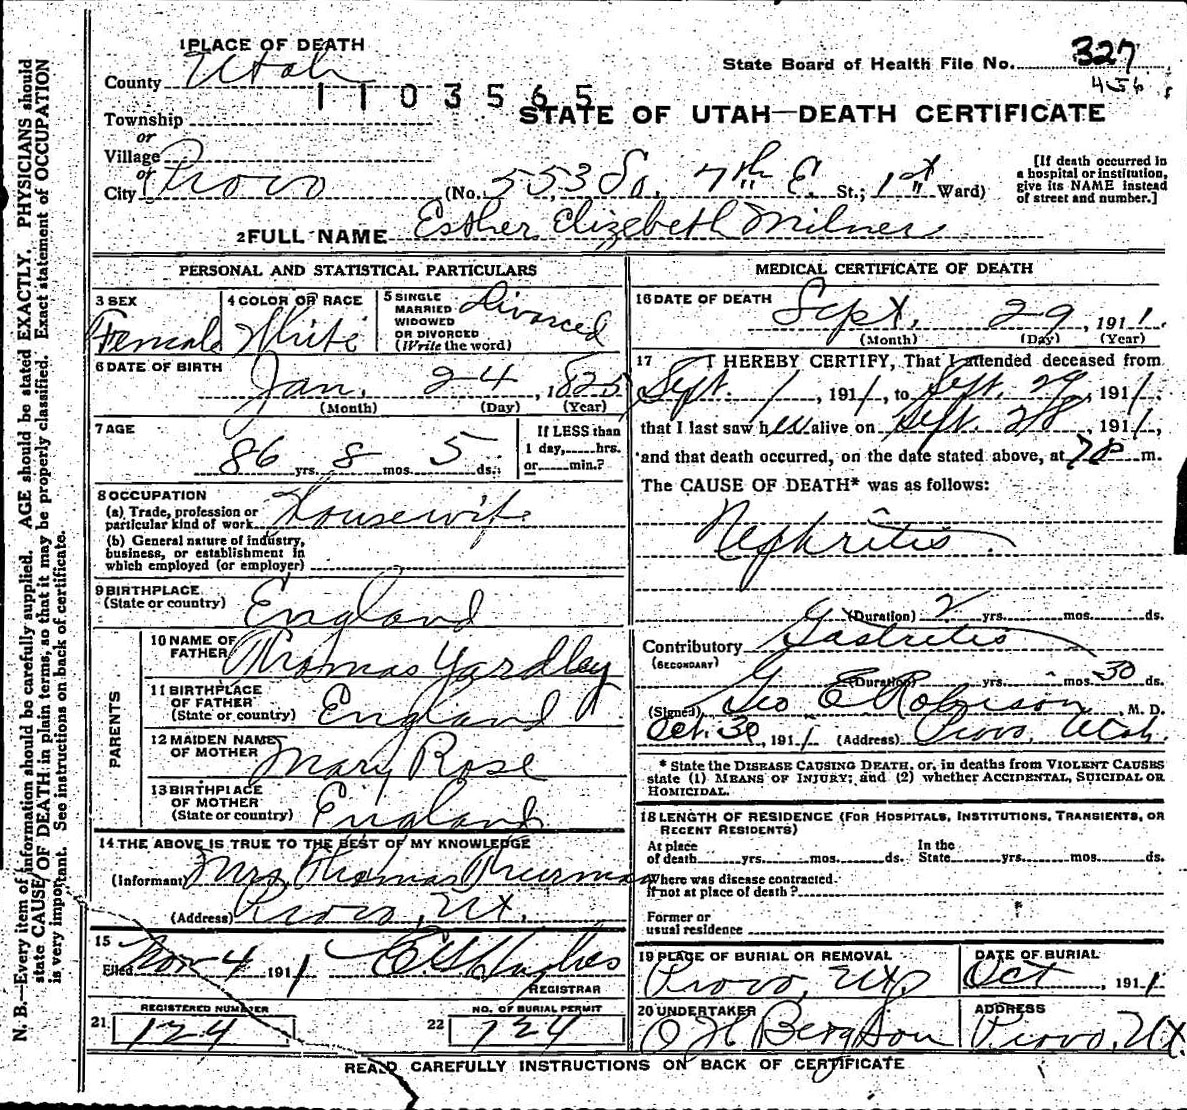 N. B.—Every item of information should be carefully supplied. AGE should be stated EXACTLY. PHYSICIANS should
state CAUSE OF DEATH in plain terms, so that it may be properly classified. Exact statement of OCCUPATION
is very important. See instructions on back of certificate.
1 PLACE OF DEATH
County Utah
State Board of Health File No. 327
456
1103565
Township
or
STATE OF UTAH—DEATH CERTIFICATE
Village
or
City Provo (No. 553 So. 7th E. St.; 1st Ward)
[If death occurred in
a hospital or institution,
give its NAME instead
of street and number.]
2 FULL NAME Esther Elizebeth Milner
PERSONAL AND STATISTICAL PARTICULARS
3 SEX
Female
4 COLOR OR RACE
White
5 SINGLE
MARRIED
WIDOWED
OR DIVORCED
(Write the word)
Divorced
6 DATE OF BIRTH
Jan. 24, 1825
(Month) (Day) (Year)
7 AGE
86 yrs. 8 mos. 5 ds.
If LESS than
1 day, hrs.
or min.?
8 OCCUPATION
(a) Trade, profession or
particular kind of work Housewife
(b) General nature of industry,
business, or establishment in
which employed (or employer)
9 BIRTHPLACE
(State or country) England
PARENTS
10 NAME OF
FATHER Thomas Yardley
11 BIRTHPLACE
OF FATHER
(State or country) England
12 MAIDEN NAME
OF MOTHER Mary Rose
13 BIRTHPLACE
OF MOTHER
(State or country) England
14 THE ABOVE IS TRUE TO THE BEST OF MY KNOWLEDGE
(Informant) Mrs Thomas Thurman
(Address) Provo, Ut.
15
Filed Nov 4 1911
Hughes
REGISTRAR
REGISTERED NUMBER
21 124
NO. OF BURIAL PERMIT
22 124
MEDICAL CERTIFICATE OF DEATH
16 DATE OF DEATH
Sept. 29, 1911.
(Month) (Day) (Year)
17 I HEREBY CERTIFY, That I attended deceased from
Sept. 1, 1911, to Sept. 29, 1911.
that I last saw her alive on Sept. 28, 1911,
and that death occurred, on the date stated above, at 7 P m.
The CAUSE OF DEATH* was as follows:
Nephritis
(Duration) 2 yrs. mos. ds.
Contributory Gastritis
(SECONDARY)
(Duration) yrs. mos. 30 ds.
(Signed) Geo E Robison, M. D.
Oct. 30, 1911 (Address) Provo, Utah.
* State the DISEASE CAUSING DEATH, or, in deaths from VIOLENT CAUSES
state (1) MEANS OF INJURY; and (2) whether ACCIDENTAL, SUICIDAL OR
HOMICIDAL.
18 LENGTH OF RESIDENCE (FOR HOSPITALS, INSTITUTIONS, TRANSIENTS, OR
RECENT RESIDENTS)
At place
of death yrs. mos. ds.
In the
State yrs. mos. ds.
Where was disease contracted
if not at place of death?
Former or
usual residence
19 PLACE OF BURIAL OR REMOVAL
Provo, Ut,
DATE OF BURIAL
Oct, 1911
20 UNDERTAKER
O H Bergson
ADDRESS
Provo, Ut.
READ CAREFULLY INSTRUCTIONS ON BACK OF CERTIFICATE